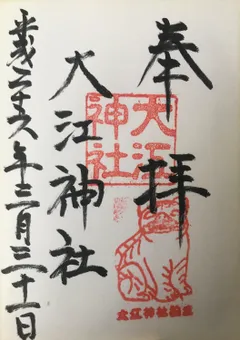 奉拝
大江神社
大江神社
平成二十六年三月三十一日
大江神社狛虎